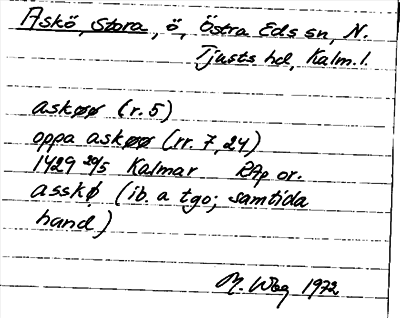 Askö, Stora, ö, Östra Eds sn, N.
Tjusts hd, Kalm. l.
askøø (r. 5)
oppa askøø (rr. 7, 24)
1429 20/5 Kalmar RAp or.
asskø (ib. a tgo; samtida
hand)
M. Wag 1972